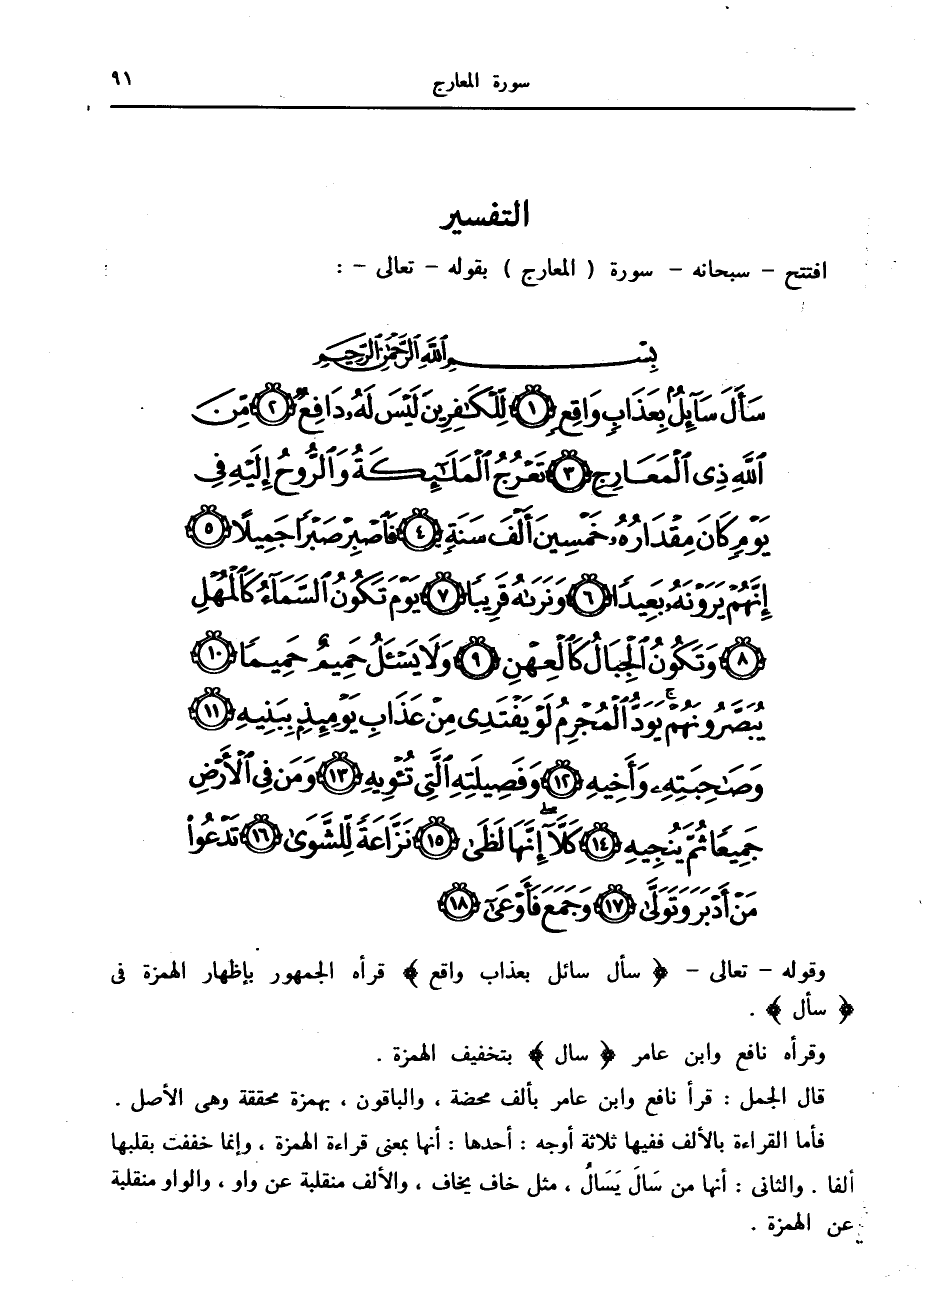 سورة المعارج ٩١
التفسير
افتتح – سبحانه – سورة ( المعارج ) بقوله – تعالى – :
بِسْمِ ٱللَّهِ ٱلرَّحْمَٰنِ ٱلرَّحِيمِ
سَأَلَ سَآئِلٌۢ بِعَذَابٍ وَاقِعٍ ١ لِّلْكَٰفِرِينَ لَيْسَ لَهُۥ دَافِعٌ ٢ مِّنَ
ٱللَّهِ ذِى ٱلْمَعَارِجِ ٣ تَعْرُجُ ٱلْمَلَٰٓئِكَةُ وَٱلرُّوحُ إِلَيْهِ فِى
يَوْمٍ كَانَ مِقْدَارُهُۥ خَمْسِينَ أَلْفَ سَنَةٍ ٤ فَٱصْبِرْ صَبْرًا جَمِيلًا ٥
إِنَّهُمْ يَرَوْنَهُۥ بَعِيدًا ٦ وَنَرَىٰهُ قَرِيبًا ٧ يَوْمَ تَكُونُ ٱلسَّمَآءُ كَٱلْمُهْلِ
٨ وَتَكُونُ ٱلْجِبَالُ كَٱلْعِهْنِ ٩ وَلَا يَسْـَٔلُ حَمِيمٌ حَمِيمًا ١٠
يُبَصَّرُونَهُمْ ۚ يَوَدُّ ٱلْمُجْرِمُ لَوْ يَفْتَدِى مِنْ عَذَابِ يَوْمِئِذٍۭ بِبَنِيهِ ١١
وَصَٰحِبَتِهِۦ وَأَخِيهِ ١٢ وَفَصِيلَتِهِ ٱلَّتِى تُـْٔوِيهِ ١٣ وَمَن فِى ٱلْأَرْضِ
جَمِيعًا ثُمَّ يُنجِيهِ ١٤ كَلَّآ ۖ إِنَّهَا لَظَىٰ ١٥ نَزَّاعَةً لِّلشَّوَىٰ ١٦ تَدْعُوا۟
مَنْ أَدْبَرَ وَتَوَلَّىٰ ١٧ وَجَمَعَ فَأَوْعَىٰٓ ١٨
وقوله – تعالى – ﴿ سأل سائل بعذاب واقع ﴾ قرأه الجمهور بإظهار الهمزة فى
﴿ سأل ﴾ .
وقرأه نافع وابن عامر ﴿ سال ﴾ بتخفيف الهمزة .
قال الجمل : قرأ نافع وابن عامر بألف محضة ، والباقون ، بهمزة محققة وهى الأصل .
فأما القراءة بالألف ففيها ثلاثة أوجه : أحدها : أنها بمعنى قراءة الهمزة ، وإنما خففت بقلبها
ألفا . والثانى : أنها من سَالَ يَسَالُ ، مثل خاف يخاف ، والألف منقلبة عن واو ، والواو منقلبة
عن الهمزة .